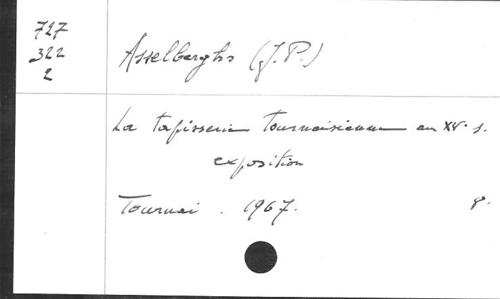 727
322
2
Asselberghs (J.P.)
La tapisserie tournaisienne au XVe s.
exposition
Tournai . 1967. 8°